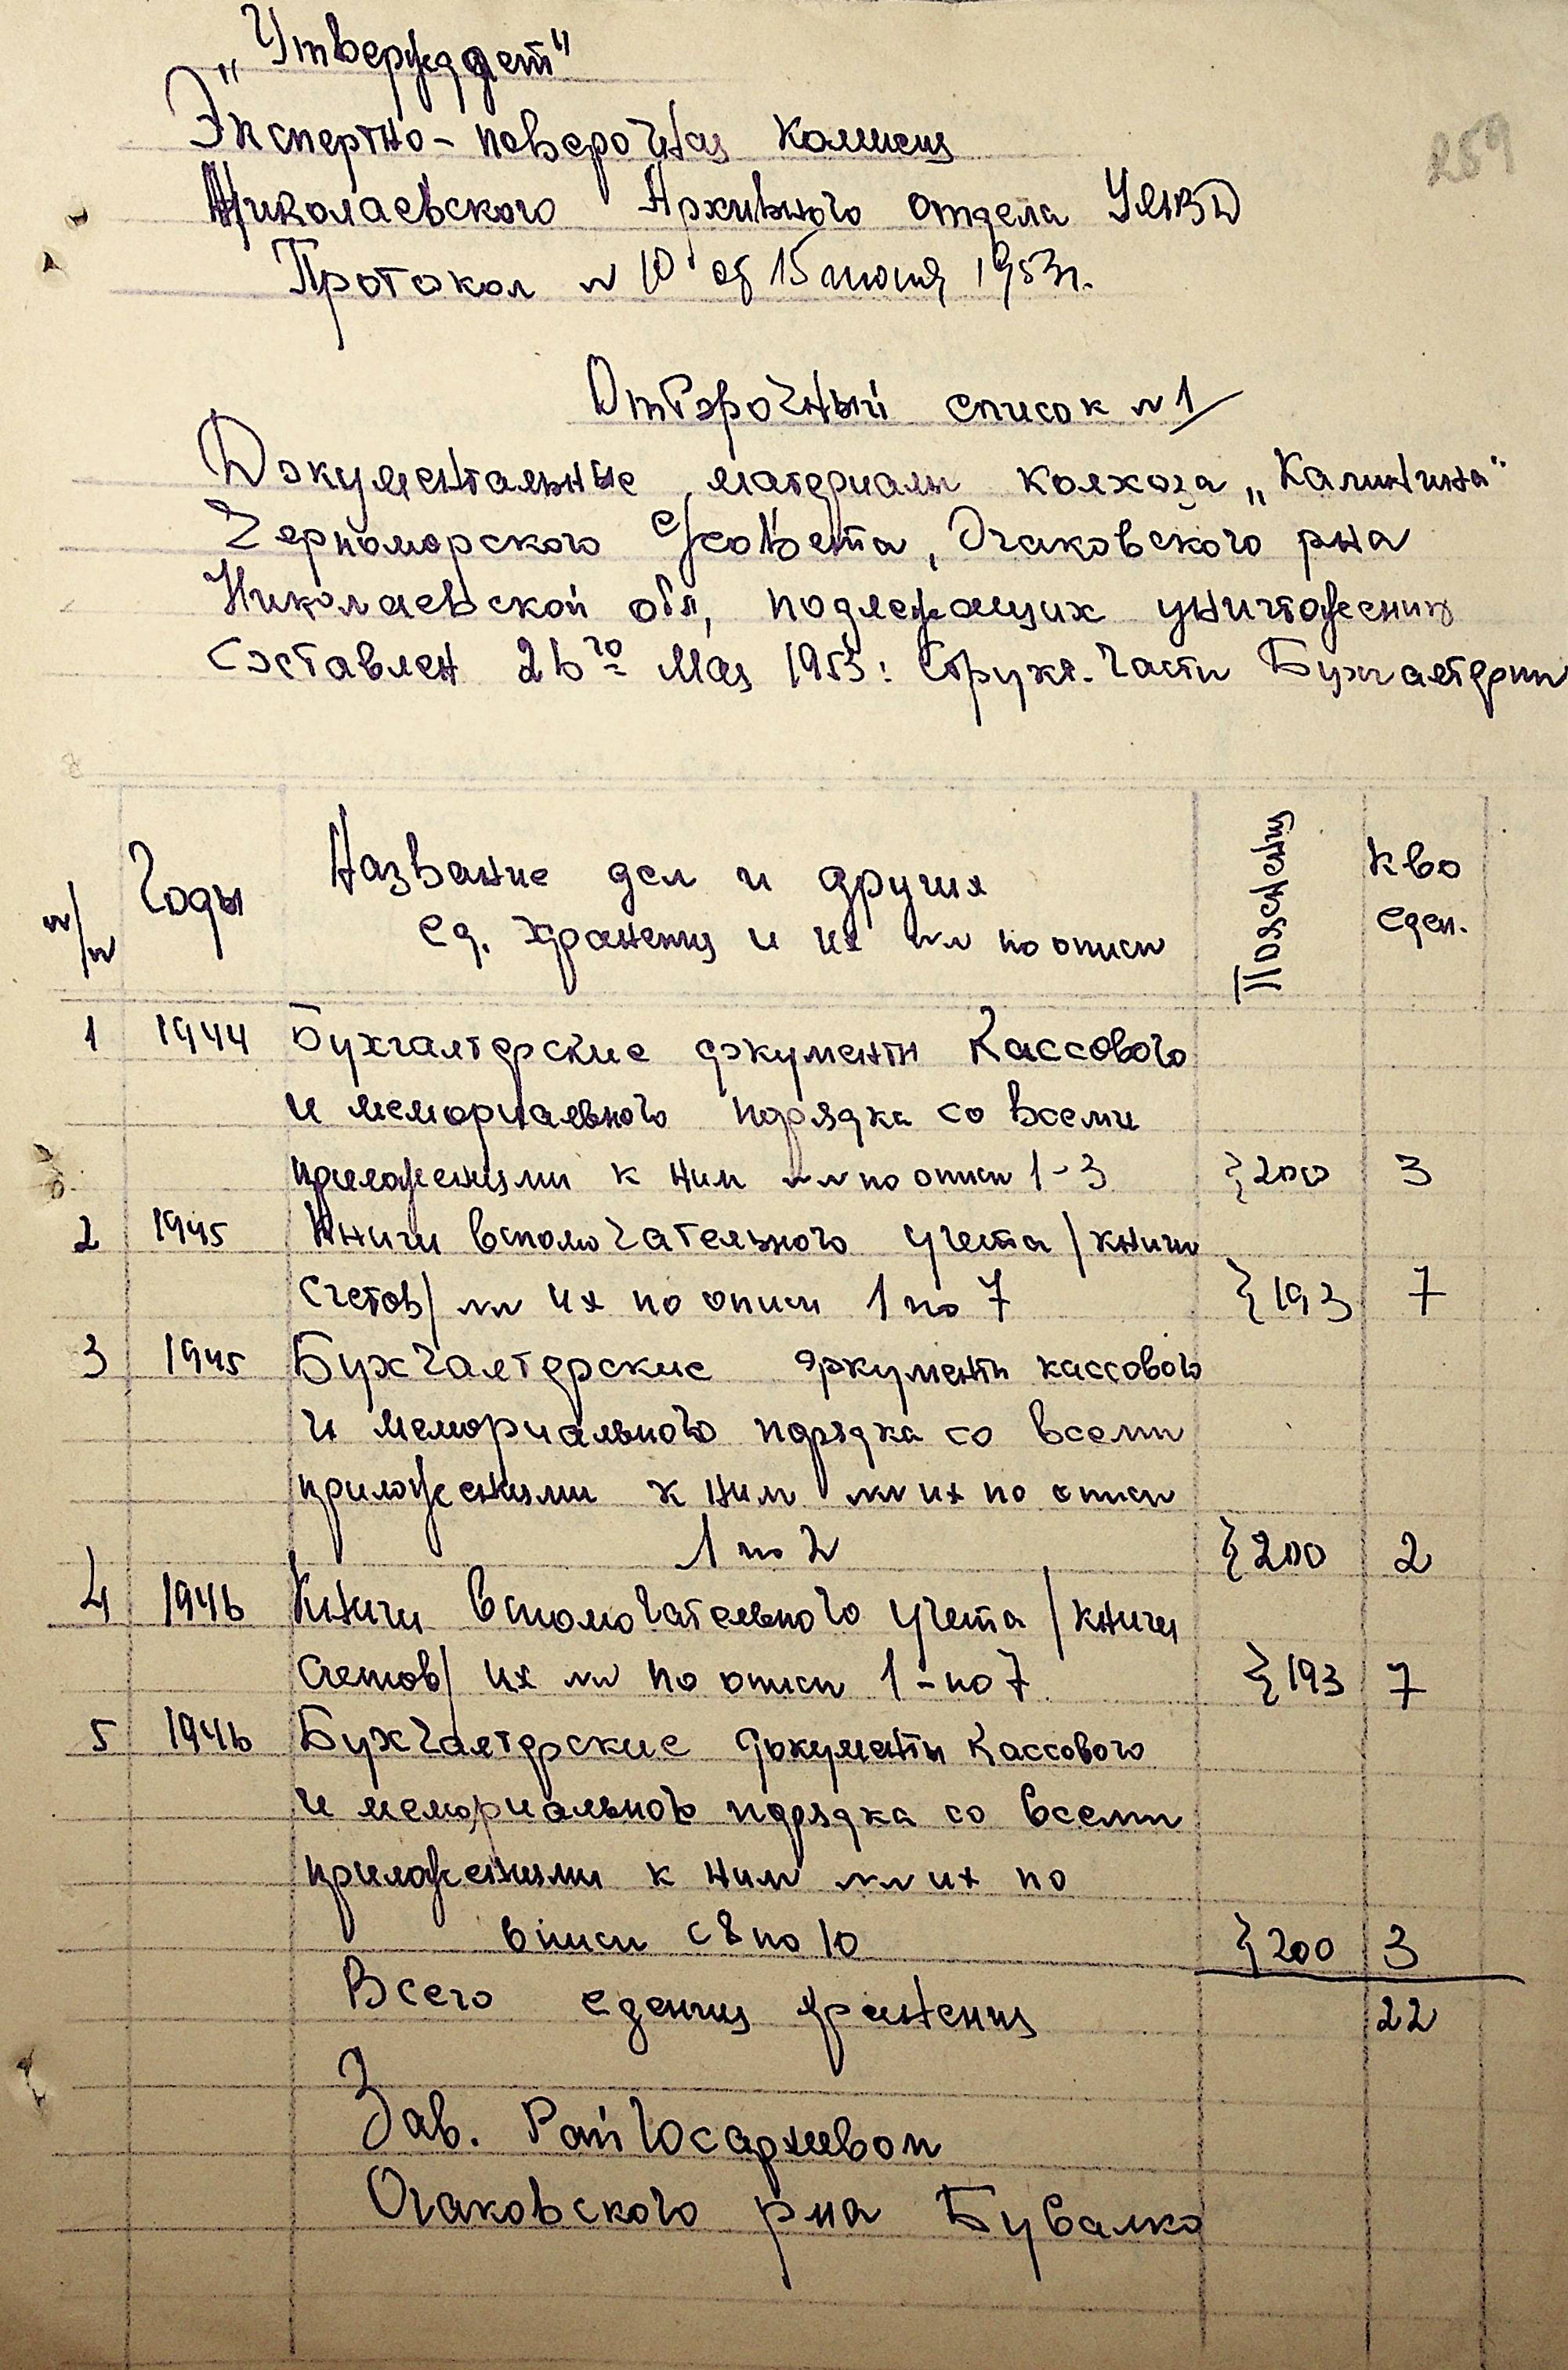 "Утверждает"
Экспертно-поверочная комисия
259
Николаевского Архивного отдела УМВД
Протокол № 10 от 15 июня 1953г.
Отборочный список №1
Документальные материалы колхоза „Калинина"
Черноморского с/совета, Очаковского рна
Николаевской обл, подлежащих уничтожению
Составлен 26го Мая 1953: Структ. части Бухгалтерии
№/№
Годы
Название дел и других
ед. хранения и их №№ по описи
Пояснения
Кво
еден.
1 1944 Бухгалтерские документы Кассового
и мемориального порядка со всеми
приложениями к ним №№ по описи 1-3 }200 3
2 1945 Книги вспомогательного учета /книги
счетов/ №№ их по описи 1 по 7 }193 7
3 1945 Бухгалтерские документы кассового
и мемориального порядка со всеми
приложениями к ним №№ их по описи
1 по 2 }200 2
4 1946 Книги вспомогательного учета /книги
счетов/ их №№ по описи 1-по 7 }193 7
5 1946 Бухгалтерские документы Кассового
и мемориального порядка со всеми
приложениями к ним №№ их по
описи с 8 по 10 }200 3
Всего едениц хранения 22
Зав. Райгосархивом
Очаковского рна Бувалко